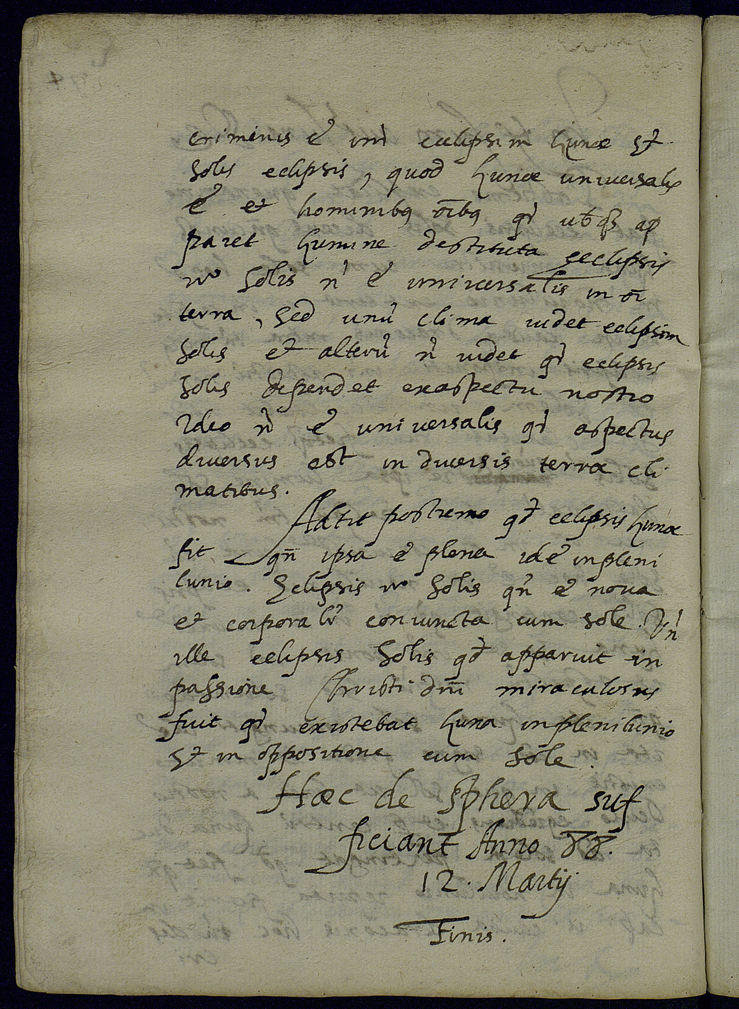 criminis ē intr̄ eclipsim Lunæ et
Solis eclipsis, quod Lunæ universalis
ē et hominibꝫ oībꝫ qr̄ ubꝗꝫ ap
paret Lumine destituta eclipsis
vº Solis n̄ ē universalis in oī
terra, Sed unū clima videt eclipsim
Solis et alterū n̄ videt qr̄ eclipsis
Solis dependet ex aspectu nostro
Ideo n̄ ē universalis qr̄ aspectus
diversus est in diversis terra cli
matibus.
Adtit postremo qd̄ eclipsis Lunæ
fit qn̄ ipsa ē plena id ē in pleni
lunio. Eclipsis vº Solis qn̄ ē nova
et corporalr̄ coniuncta cum Sole. Vn̄
ille eclipsis Solis qd̄ apparuit in
passione Christi dn̄i miraculosus
fuit qr̄ existebat Luna in plenilunio
Et in oppositione cum Sole.
Hæc de sphera suf
ficiant Anno 88.
12. Martij
Finis.